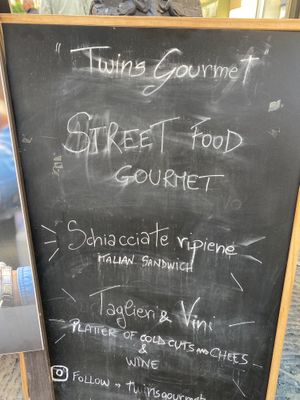 " Twins Gourmet
STREET FOOD
GOURMET
Schiacciate ripiene
ITALIAN SANDWICH
Taglieri & Vini
PLATTER OF COLD CUTS AND CHEES
&
WINE
FOLLOW → twinsgourmet